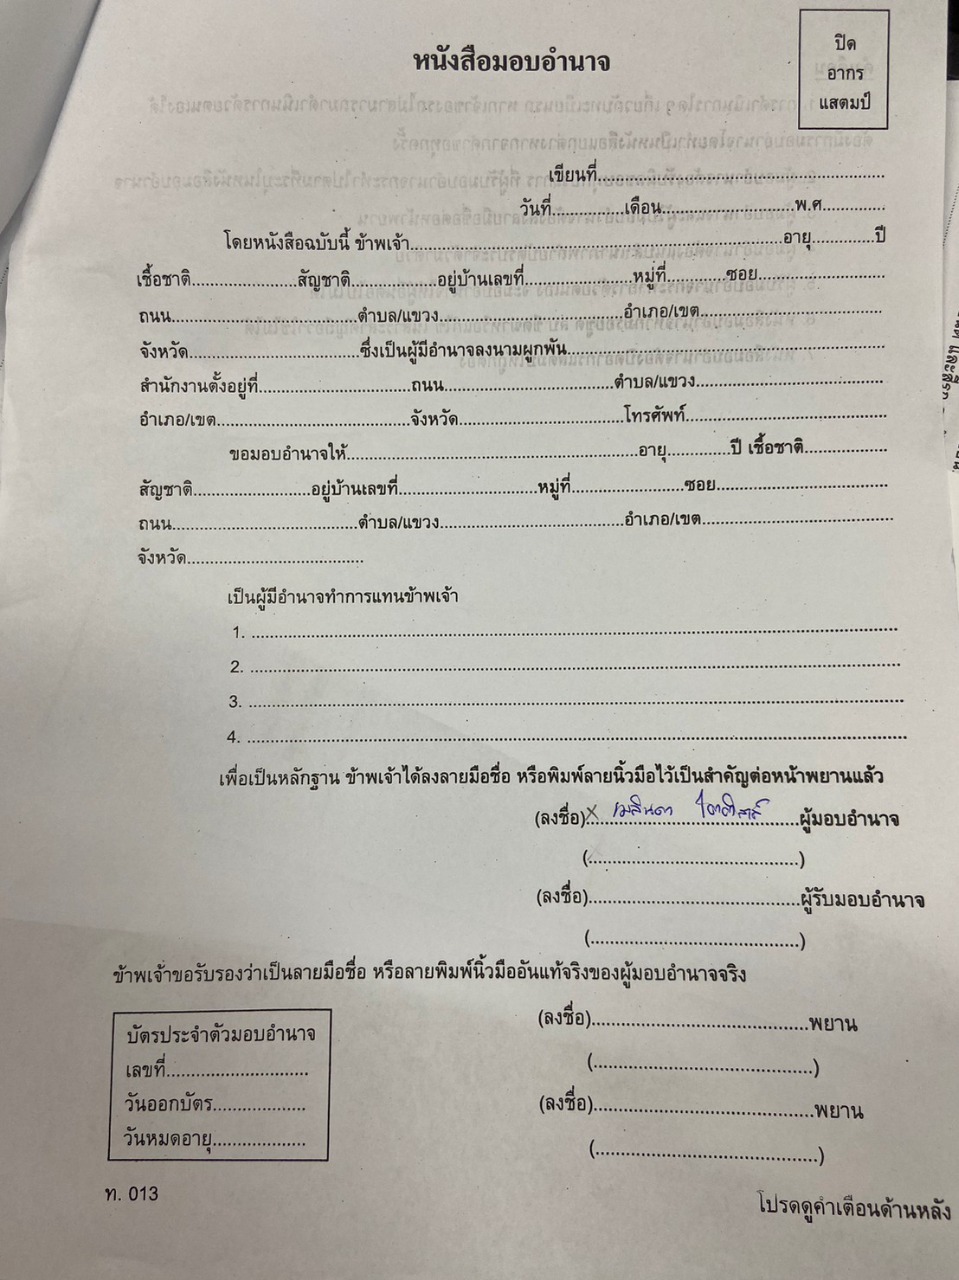 ปิด
อากร
แสตมป์
หนังสือมอบอำนาจ
เขียนที่......................................................
วันที่...............เดือน...........................พ.ศ.............
โดยหนังสือฉบับนี้ ข้าพเจ้า............................................................................อายุ.............ปี
เชื้อชาติ......................สัญชาติ..................อยู่บ้านเลขที่......................หมู่ที่.............ซอย..........................
ถนน.......................................ตำบล/แขวง......................................อำเภอ/เขต......................................
จังหวัด...................................ซึ่งเป็นผู้มีอำนาจลงนามผูกพัน.................................................................
สำนักงานตั้งอยู่ที่................................ถนน...................................ตำบล/แขวง.......................................
อำเภอ/เขต........................................จังหวัด..................................โทรศัพท์.........................................
ขอมอบอำนาจให้............................................................อายุ.............ปี เชื้อชาติ.................
สัญชาติ........................อยู่บ้านเลขที่.............................หมู่ที่.......................ซอย...................................
ถนน.......................................ตำบล/แขวง......................................อำเภอ/เขต........................................
จังหวัด.....................................
เป็นผู้มีอำนาจทำการแทนข้าพเจ้า
1. ....................................................................................................................................
2. ....................................................................................................................................
3. ....................................................................................................................................
4. ....................................................................................................................................
เพื่อเป็นหลักฐาน ข้าพเจ้าได้ลงลายมือชื่อ หรือพิมพ์ลายนิ้วมือไว้เป็นสำคัญต่อหน้าพยานแล้ว
(ลงชื่อ)X เมสินดา ..........ผู้มอบอำนาจ
(...........................................)
(ลงชื่อ)...........................................ผู้รับมอบอำนาจ
(...........................................)
ข้าพเจ้าขอรับรองว่าเป็นลายมือชื่อ หรือลายพิมพ์นิ้วมืออันแท้จริงของผู้มอบอำนาจจริง
(ลงชื่อ)...........................................พยาน
(.............................................)
(ลงชื่อ)............................................พยาน
(.............................................)
บัตรประจำตัวมอบอำนาจ
เลขที่.............................
วันออกบัตร...................
วันหมดอายุ...................
ท. 013
โปรดดูคำเตือนด้านหลัง